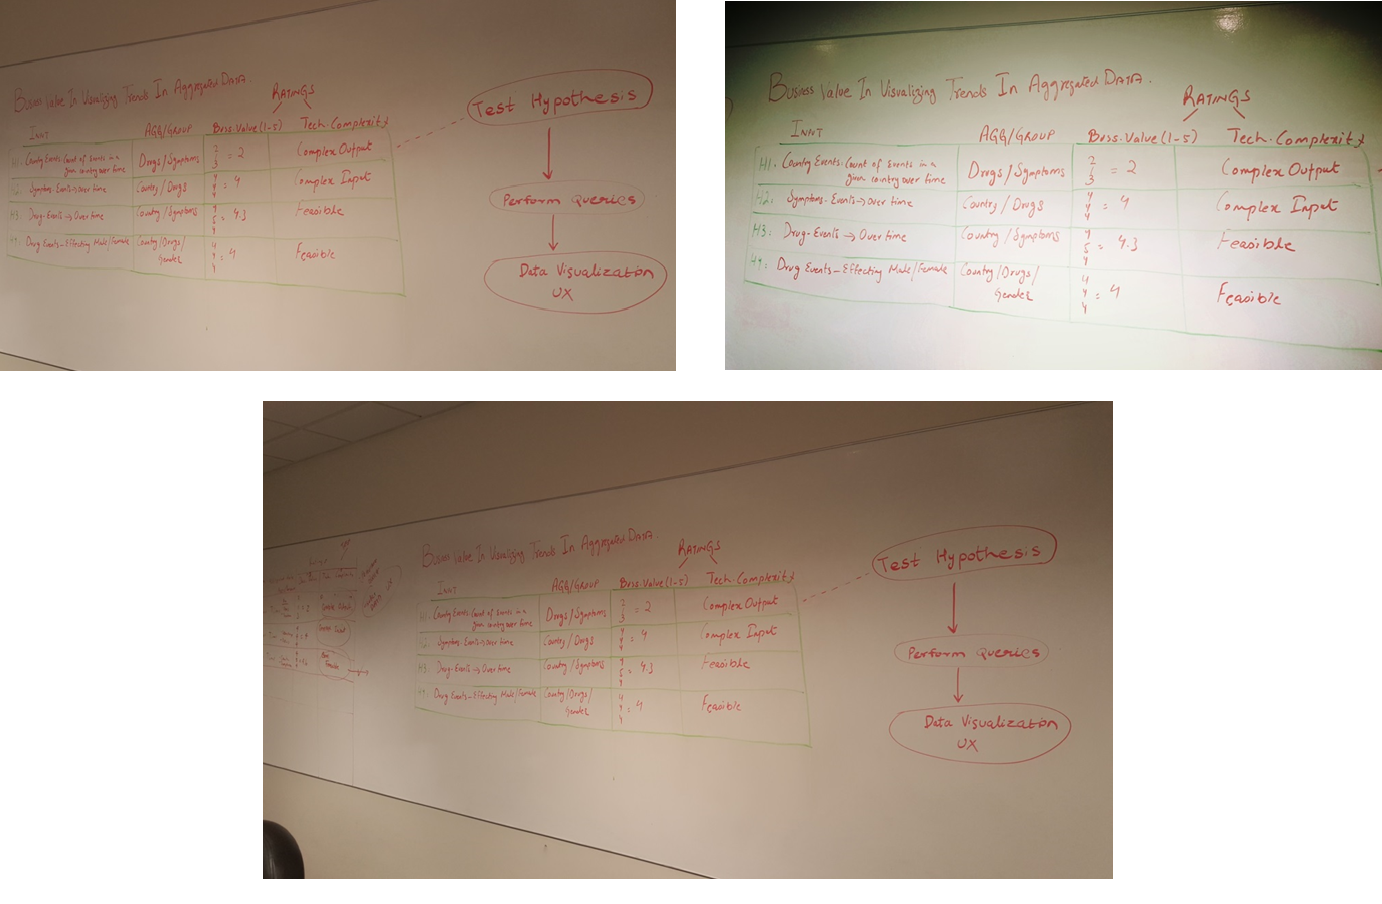 Business Value In Visualizing Trends In Aggregated DATA.
RATINGS
INPUT AGG/GROUP Buss. Value (1-5) Tech. Complexity
H1. Country Events. Count of Events in a given country over time Drugs/Symptoms 2 1 3 = 2 Complex Output
H2: Symptoms-Events → Over time Country/Drugs 4 4 4 = 4 Complex Input
H3: Drug-Events → Over time Country/Symptoms 4 5 4 = 4.3 Feasible
H4: Drug Events - Effecting Male/Female Country/Drugs/Gender 4 4 4 = 4 Feasible
Test Hypothesis
Perform Queries
Data Visualization
UX
Business Value In Visualizing Trends In Aggregated DATA.
RATINGS
INPUT AGG/GROUP Buss. Value (1-5) Tech. Complexity
H1. Country Events. Count of Events in a given country over time Drugs/Symptoms 2 1 3 = 2 Complex Output
H2: Symptoms-Events → Over time Country/Drugs 4 4 4 = 4 Complex Input
H3: Drug-Events → Over time Country/Symptoms 4 5 4 = 4.3 Feasible
H4: Drug Events - Effecting Male/Female Country/Drugs/Gender 4 4 4 = 4 Feasible
Business Value In Visualizing Trends In Aggregated DATA.
RATINGS
INPUT AGG/GROUP Buss. Value (1-5) Tech. Complexity
H1. Country Events. Count of Events in a given country over time Drugs/Symptoms 2 1 3 = 2 Complex Output
H2: Symptoms-Events → Over time Country/Drugs 4 4 4 = 4 Complex Input
H3: Drug-Events → Over time Country/Symptoms 4 5 4 = 4.3 Feasible
H4: Drug Events - Effecting Male/Female Country/Drugs/Gender 4 4 4 = 4 Feasible
Test Hypothesis
Perform Queries
Data Visualization
UX